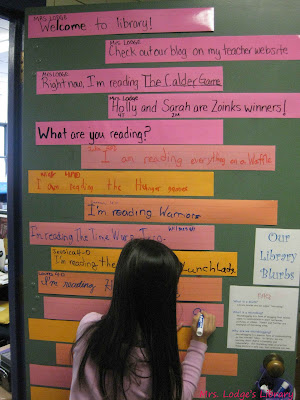 Mrs. Lodge
Welcome to library!
Mrs. Lodge
Check out our blog on my teacher website
Mrs. Lodge
Right now, I'm reading The Calder Game
Mrs. Lodge
Holly and Sarah are Zoinks winners!
What are you reading?
I am reading everything on a Waffle
I am reading the Hunger games
I'm reading Warriors
I'm reading The Time Warp Trio
Jessica 4-D
I'm reading the Lunch Lady
I'm reading
Our
Library
Blurbs
Mrs. Lodge's Library